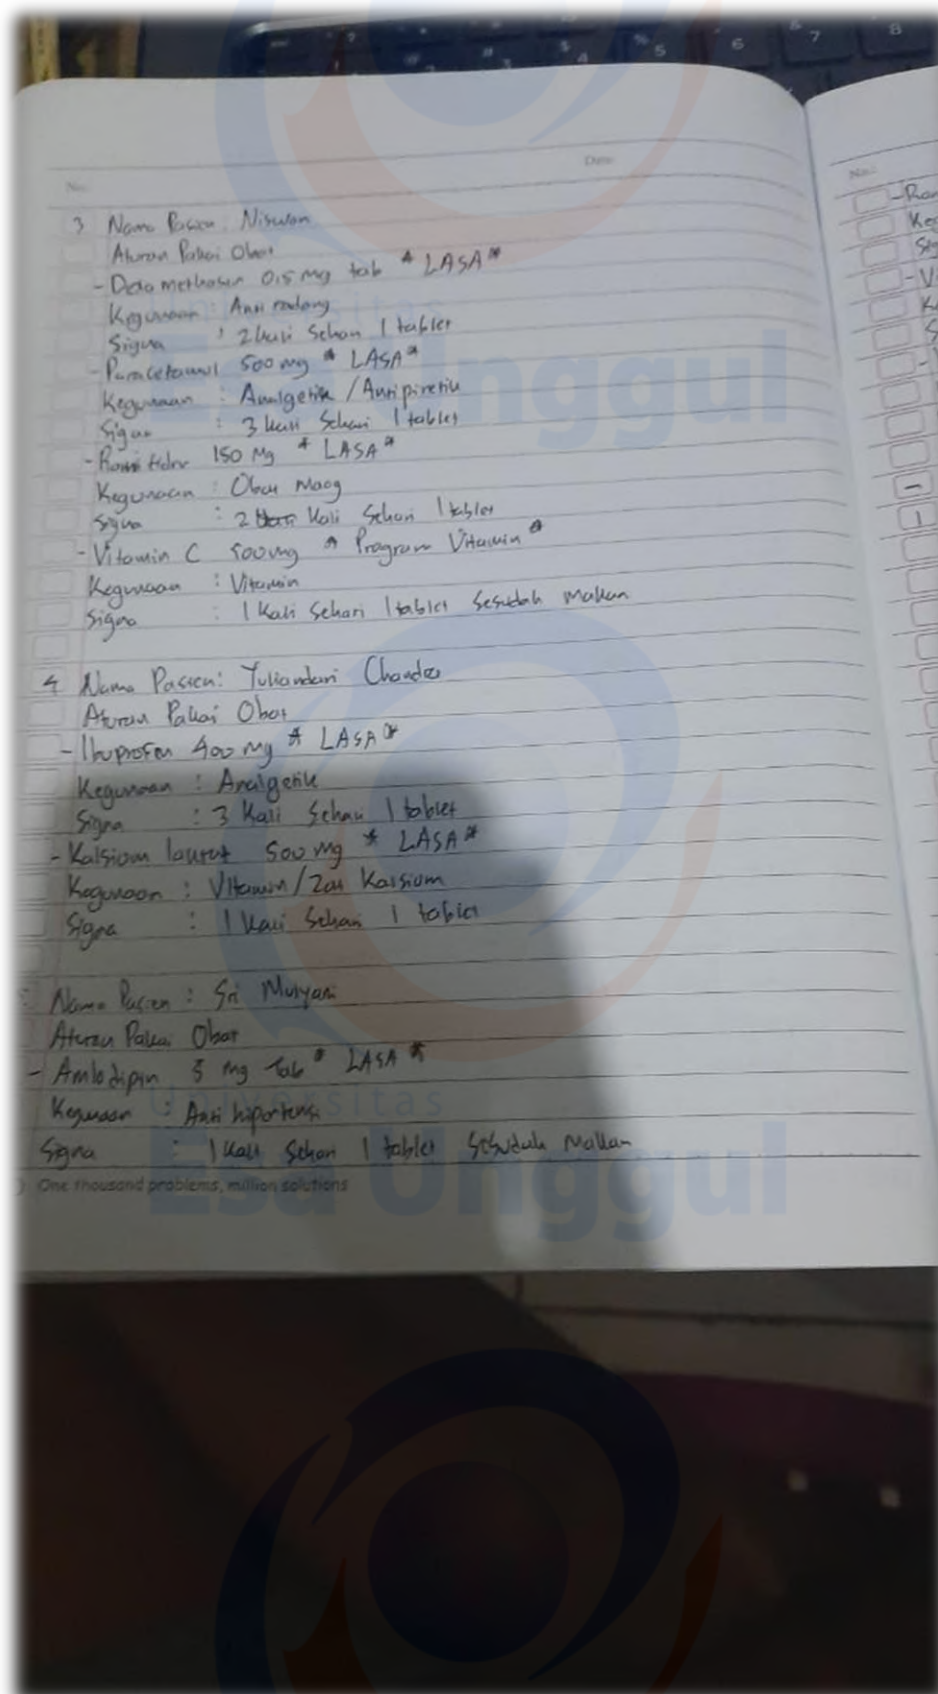 No:
Date:
3 Nama Pasien: Niswan
Aturan Pakai Obat
- Dexamethason 0.5 mg tab * LASA *
Kegunaan : Anti radang
Signa : 2 kali Sehari 1 tablet
- Paracetamol 500 mg * LASA *
Kegunaan : Analgetik / Antipiretik
Signa : 3 kali Sehari 1 tablet
- 150 Mg * LASA *
Kegunaan : Obat Maag
Signa : 2 Kali Sehari 1 tablet
- Vitamin C 500 mg * Program Vitamin *
Kegunaan : Vitamin
Signa : 1 Kali Sehari 1 tablet Sesudah Makan
4 Nama Pasien: Yuliandari Chandra
Aturan Pakai Obat
- Ibuprofen 400 mg * LASA *
Kegunaan : Analgetik
Signa : 3 Kali Sehari 1 tablet
- Kalsium 500 mg * LASA *
Kegunaan : Vitamin / Zat Kalsium
Signa : 1 Kali Sehari 1 tablet
Nama Pasien : Sri Mulyani
Aturan Pakai Obat
- Amlodipin 5 mg Tab * LASA *
Kegunaan : Anti hipertensi
Signa : 1 Kali Sehari 1 tablet Sesudah Makan
One thousand problems, million solutions
No.:
Universitas
Esa Unggul
Universitas
Esa Unggul